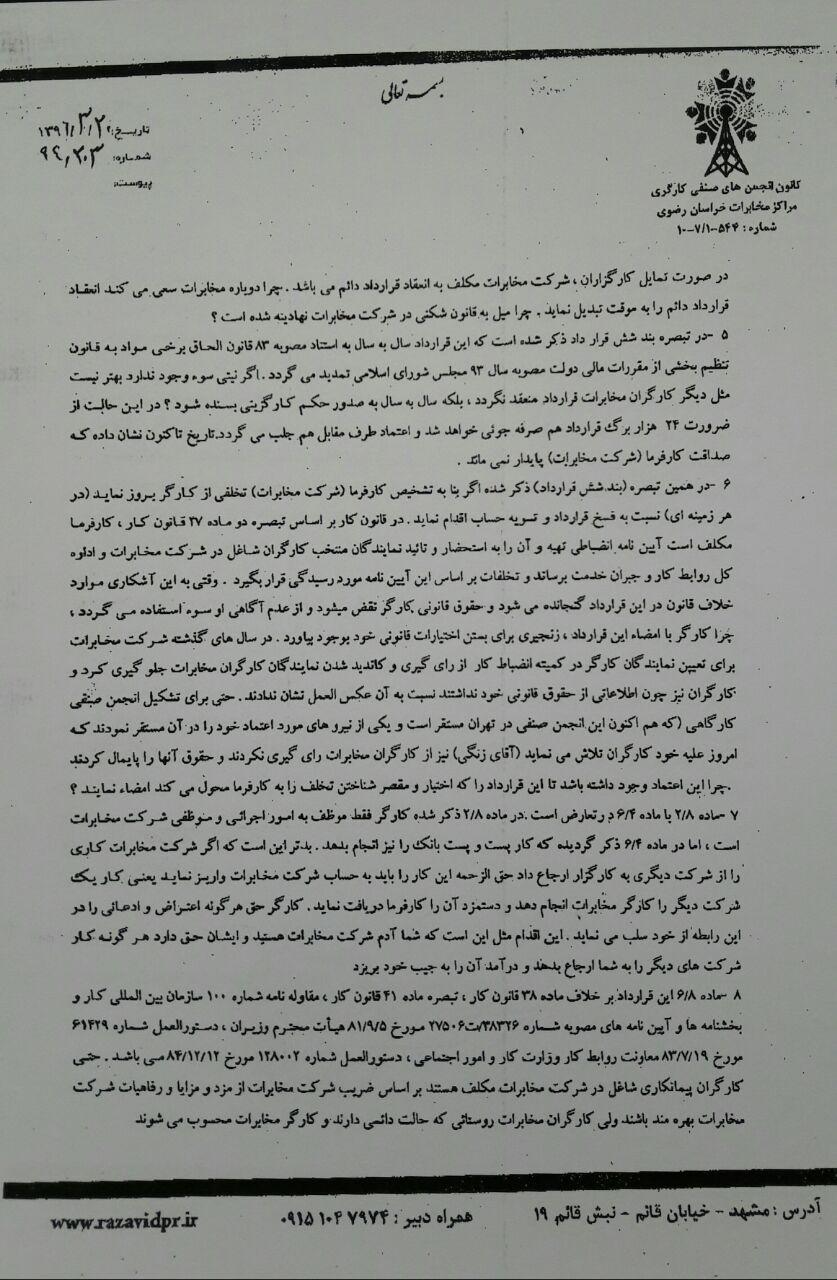 بسمه تعالی
تاریخ: ۱۳۹۶/۳/۲
شماره: ۹۶٫۳۰۳
پیوست:
کانون انجمن های صنفی کارگری
مراکز مخابرات خراسان رضوی
شماره: ۵۴۴-۷/۱-۱۰
در صورت تمایل کارگزاران ، شرکت مخابرات مکلف به انعقاد قرارداد دائم می باشد . چرا دوباره مخابرات سعی می کند انعقاد
قرارداد دائم را به موقت تبدیل نماید . چرا میل به قانون شکنی در شرکت مخابرات نهادینه شده است ؟
۵ -در تبصره بند شش قرار داد ذکر شده است که این قرارداد سال به سال به استناد مصوبه ۸۳ قانون الحاق برخی مواد به قانون
تنظیم بخشی از مقررات مالی دولت مصوبه سال ۹۳ مجلس شورای اسلامی تمدید می گردد . اگر نیتی سوء وجود ندارد بهتر نیست
مثل دیگر کارگران مخابرات قرارداد منعقد نگردد ، بلکه سال به سال به صدور حکم کارگزینی بسنده شود ؟ در این حالت از
ضرورت ۲۴ هزار برگ قرارداد هم صرفه جوئی خواهد شد و اعتماد طرف مقابل هم جلب می گردد.تاریخ تاکنون نشان داده که
صداقت کارفرما (شرکت مخابرات) پایدار نمی ماند .
۶ -در همین تبصره (بند شش قرارداد) ذکر شده اگر بنا به تشخیص کارفرما (شرکت مخابرات) تخلفی از کارگر بروز نماید (در
هر زمینه ای) نسبت به فسخ قرارداد و تسویه حساب اقدام نماید . در قانون کار بر اساس تبصره دو ماده ۲۷ قانون کار ، کارفرما
مکلف است آیین نامه انضباطی تهیه و آن را به استحضار و تائید نمایندگان منتخب کارگران شاغل در شرکت مخابرات و اداوه
کل روابط کار و جبران خدمت برساند و تخلفات بر اساس این آیین نامه مورد رسیدگی قرار بگیرد . وقتی به این آشکاری موارد
خلاف قانون در این قرارداد گنجانده می شود و حقوق قانونی کارگر نقض میشود و از عدم آگاهی او سوء استفاده می گردد ،
چرا کارگر با امضاء این قرارداد ، زنجیری برای بستن اختیارات قانونی خود بوجود بیاورد . در سال های گذشته شرکت مخابرات
برای تعیین نمایندگان کارگر در کمیته انضباط کار از رای گیری و کاندید شدن نمایندگان کارگران مخابرات جلو گیری کرد و
کارگران نیز چون اطلاعاتی از حقوق قانونی خود نداشتند نسبت به آن عکس العمل نشان ندادند . حتی برای تشکیل انجمن صنفی
کارگاهی (که هم اکنون این انجمن صنفی در تهران مستقر است و یکی از نیرو های مورد اعتماد خود را در آن مستقر نمودند که
امروز علیه خود کارگران تلاش می نماید (آقای زنگی) نیز از کارگران مخابرات رای گیری نکردند و حقوق آنها را پایمال کردند
.چرا این اعتماد وجود داشته باشد تا این قرارداد را که اختیار و مقصر شناختن تخلف را به کارفرما محول می کند امضاء نمایند ؟
۷ -ماده ۲/۸ با ماده ۶/۴ در تعارض است .در ماده ۲/۸ ذکر شده کارگر فقط موظف به امور اجرائی و موظفی شرکت مخابرات
است ، اما در ماده ۶/۴ ذکر گردیده که کار پست و پست بانک را نیز انجام بدهد . بدتر این است که اگر شرکت مخابرات کاری
را از شرکت دیگری به کارگزار ارجاع داد حق الزحمه این کار را باید به حساب شرکت مخابرات واریز نماید یعنی کار یک
شرکت دیگر را کارگر مخابرات انجام دهد و دستمزد آن را کارفرما دریافت نماید . کارگر حق هرگونه اعتراض و ادعائی را در
این رابطه از خود سلب می نماید . این اقدام مثل این است که شما آدم شرکت مخابرات هستید و ایشان حق دارد هر گونه کار
شرکت های دیگر را به شما ارجاع بدهد و درآمد آن را به جیب خود بریزد
۸ -ماده ۶/۸ این قرارداد بر خلاف ماده ۳۸ قانون کار ، تبصره ماده ۴۱ قانون کار ، مقاوله نامه شماره ۱۰۰ سازمان بین المللی کار و
بخشنامه ها و آیین نامه های مصوبه شماره ۳۸۳۲۶/ت۲۷۵۰۶ مورخ ۸۱/۹/۵ هیأت محترم وزیران ، دستورالعمل شماره ۶۱۴۲۹
مورخ ۸۳/۷/۱۹ معاونت روابط کار وزارت کار و امور اجتماعی ، دستورالعمل شماره ۱۲۸۰۰۲ مورخ ۸۴/۱۲/۱۲ می باشد . حتی
کارگران پیمانکاری شاغل در شرکت مخابرات مکلف هستند بر اساس ضریب شرکت مخابرات از مزد و مزایا و رفاهیات شرکت
مخابرات بهره مند باشند ولی کارگران مخابرات روستائی که حالت دائمی دارند و کارگر مخابرات محسوب می شوند
آدرس : مشهد - خیابان قائم - نبش قائم ۱۹
همراه دبیر : ۷۹۷۴ ۱۰۴ ۰۹۱۵
www.razavidpr.ir